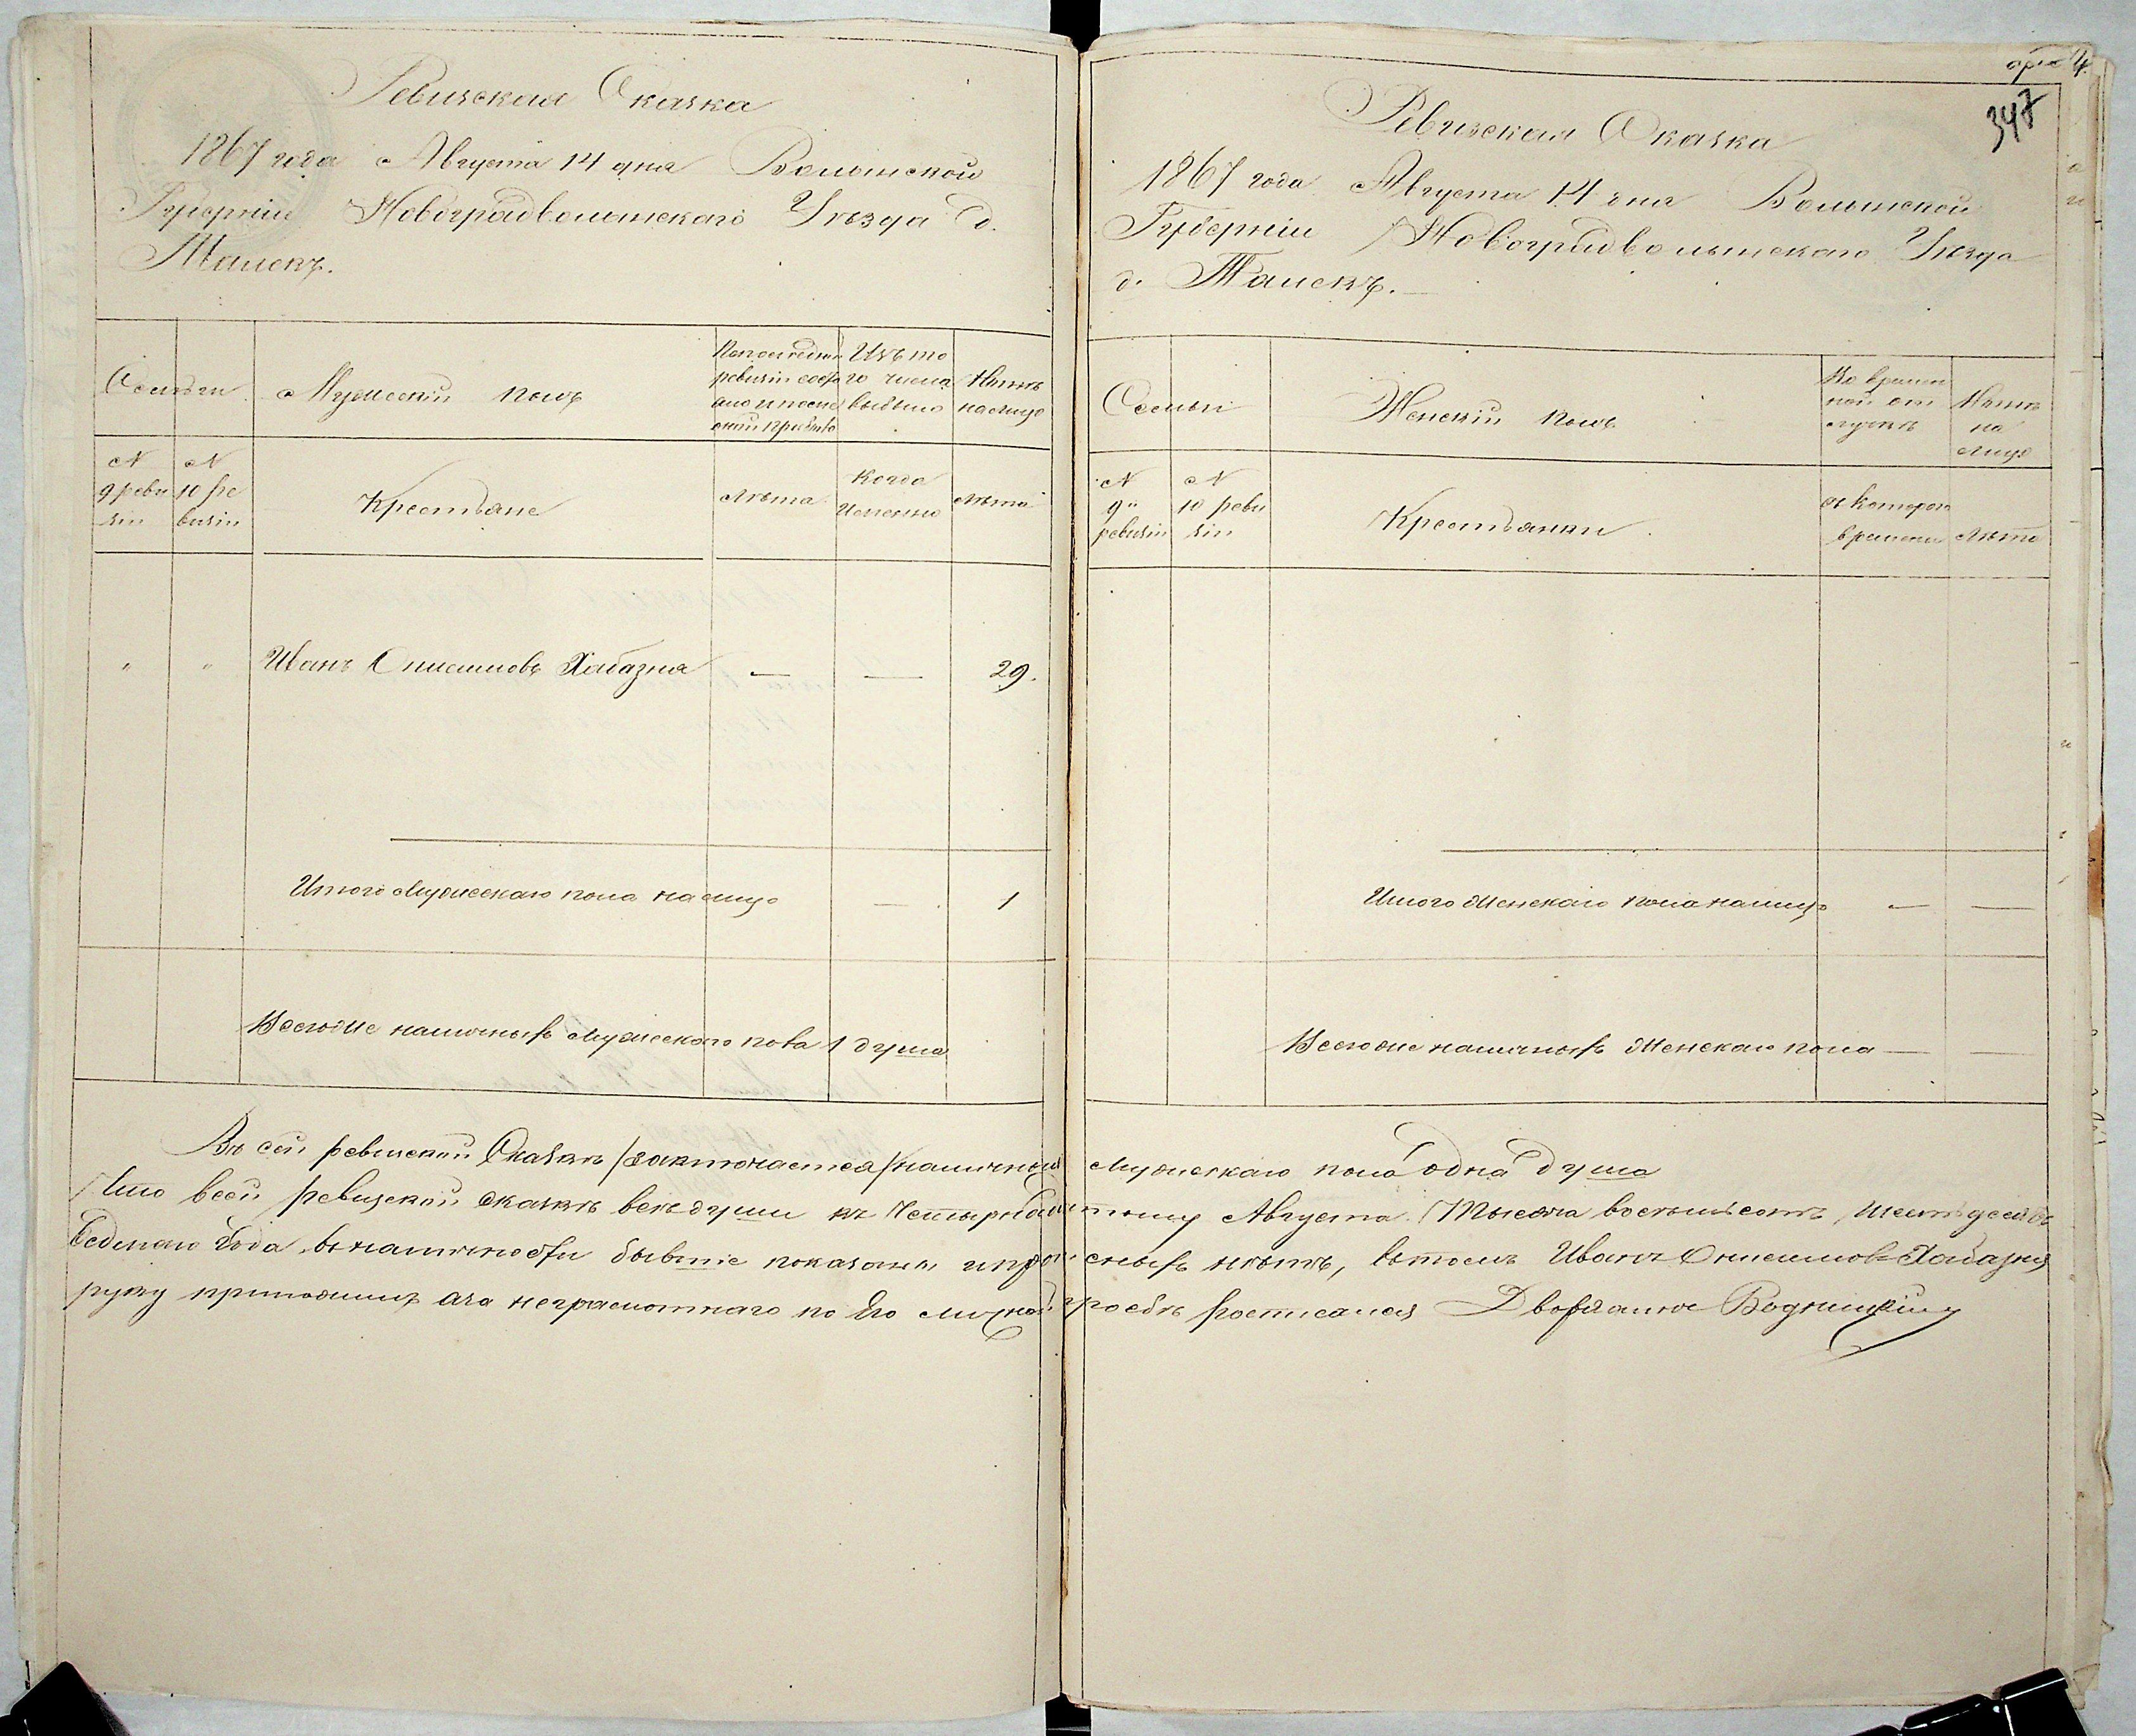 Ревизская Сказка
1867 года Августа 14 дня Волынской
Губерніи Новоградволынскаго Уѣзда д.
Семьи
Мужескій полъ
По последней ревизіи состояло и после оной прибыло
Изъ того числа выбыло
Нынѣ на лицо
N 9 ревизіи
N 10 ревизіи
Крестьяне
Лѣта
Когда Именно
Лѣта
" " Иванъ Онисимовъ Хабазня — — 29.
Итого Мужескаго пола на лицо — 1
Всего же наличныхъ Мужескаго пола 1 душа
Ревизская Сказка
347
1867 года Августа 14 дня Волынской
Губерніи Новоградволынскаго Уѣзда
д.
Семьи
Женскій полъ
Во временной отлучкѣ
Нынѣ на лицо
N 9й ревизіи
N 10 ревизіи
Крестьянки
съ котораго времени
Лѣта
Итого Женскаго пола налицо — —
Всего же наличныхъ Женскаго пола — —
Въ сей ревизской Сказкѣ заключается наличныхъ Мужескаго пола одна душа
Что всей ревизской сказкѣ всѣ души къ Четырнадцатому Августа Тысяча восемьсотъ шестьдесятъ
Седмаго Года въ наличности бывшіе показаны и прописныхъ нѣтъ, въ томъ Иванъ Онисимовъ Хабазня
руку приложилъ а за неграмотнаго по Его личной просбѣ росписался Дворянинъ